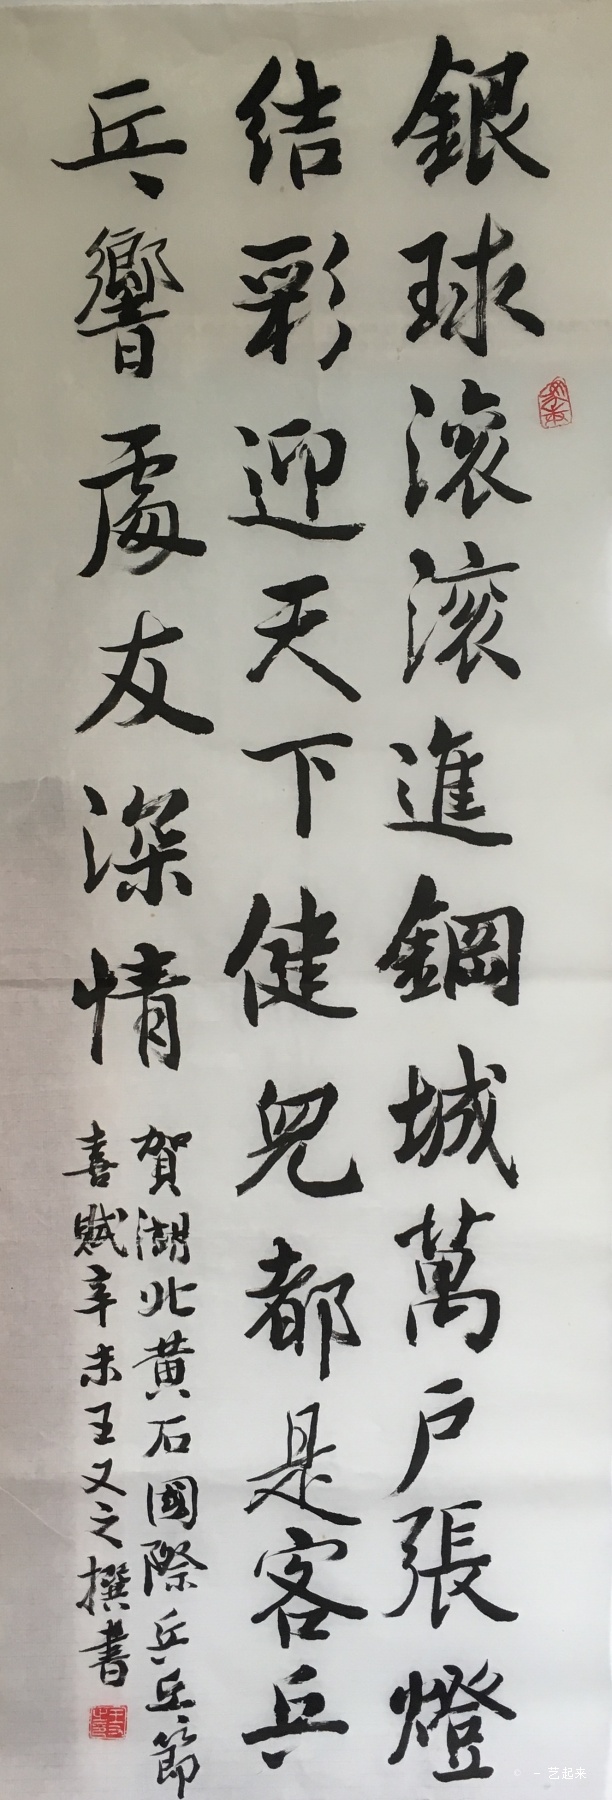 銀球滚滚進鋼城萬户張燈
结彩迎天下健兒都是客乒
乓響處友深情
賀湖北黄石國際乒乓節
喜賦辛未王又之撰書
© 一艺起来